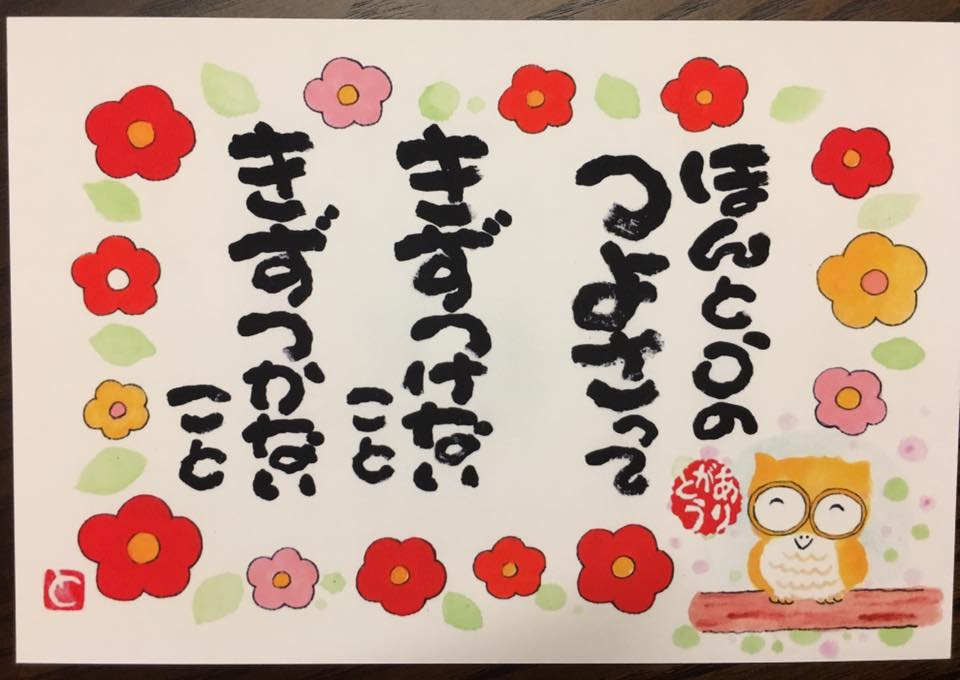 ほんとうの
つよさって
きずつけない
こと
きずつかない
こと
ありがとう
と